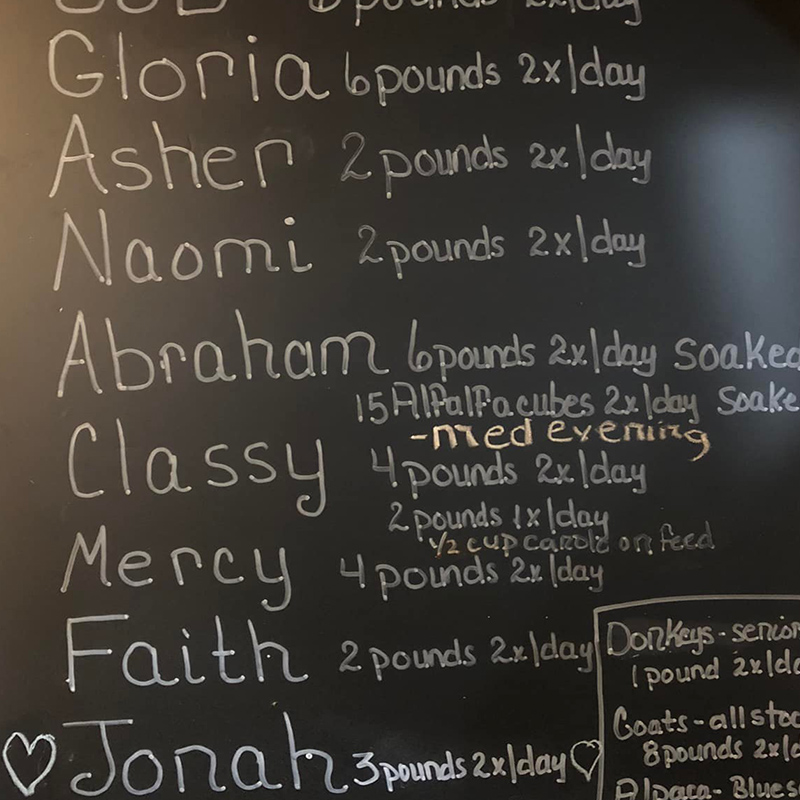 pounds 2x/day
Gloria 6 pounds 2x/day
Asher 2 pounds 2x/day
Naomi 2 pounds 2x/day
Abraham 6 pounds 2x/day Soaked
15 Alfalfa cubes 2x/day Soake
-med evening
Classy 4 pounds 2x/day
2 pounds 1x/day
1/2 cup on feed
Mercy 4 pounds 2x/day
Faith 2 pounds 2x/day
♡ Jonah 3 pounds 2x/day ♡
Donkeys - senior
1 pound 2x/da
Goats - all stoc
8 pounds 2x/
Alpaca - Blues